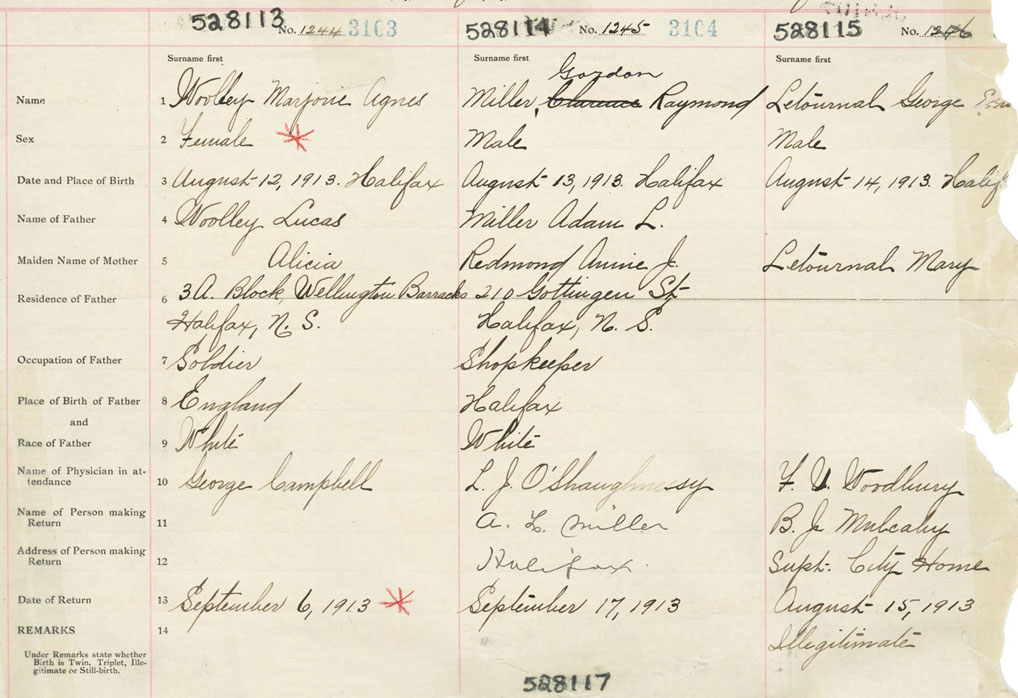 528113 No. 1244 3103 528114 No. 1245 3104 528115 No. 1246
Surname first Surname first Surname first
Gordon
Name 1 Woolley Marjorie Agnes Miller, Clarence Raymond Letournal George
Sex 2 Female Male Male
Date and Place of Birth 3 August 12, 1913. Halifax August 13, 1913. Halifax August 14, 1913. Halif
Name of Father 4 Woolley Lucas Miller Adam L.
Maiden Name of Mother 5 Alicia Redmond Annie J. Letournal Mary
Residence of Father 6 3 A. Block, Wellington Barracks 210 Gottingen St
Halifax, N. S. Halifax, N. S.
Occupation of Father 7 Soldier Shopkeeper
Place of Birth of Father 8 England Halifax
and
Race of Father 9 White White
Name of Physician in at-
tendance 10 George Campbell L. J. O'Shaughnessy F. V. Woodbury
Name of Person making
Return 11 A. L. Miller B. J. Mulcahy
Address of Person making
Return 12 Halifax. Supt. City Home
Date of Return 13 September 6, 1913 September 17, 1913 August 15, 1913
REMARKS 14 Illegitimate
Under Remarks state whether
Birth is Twin, Triplet, Ille-
gitimate or Still-birth.
528117